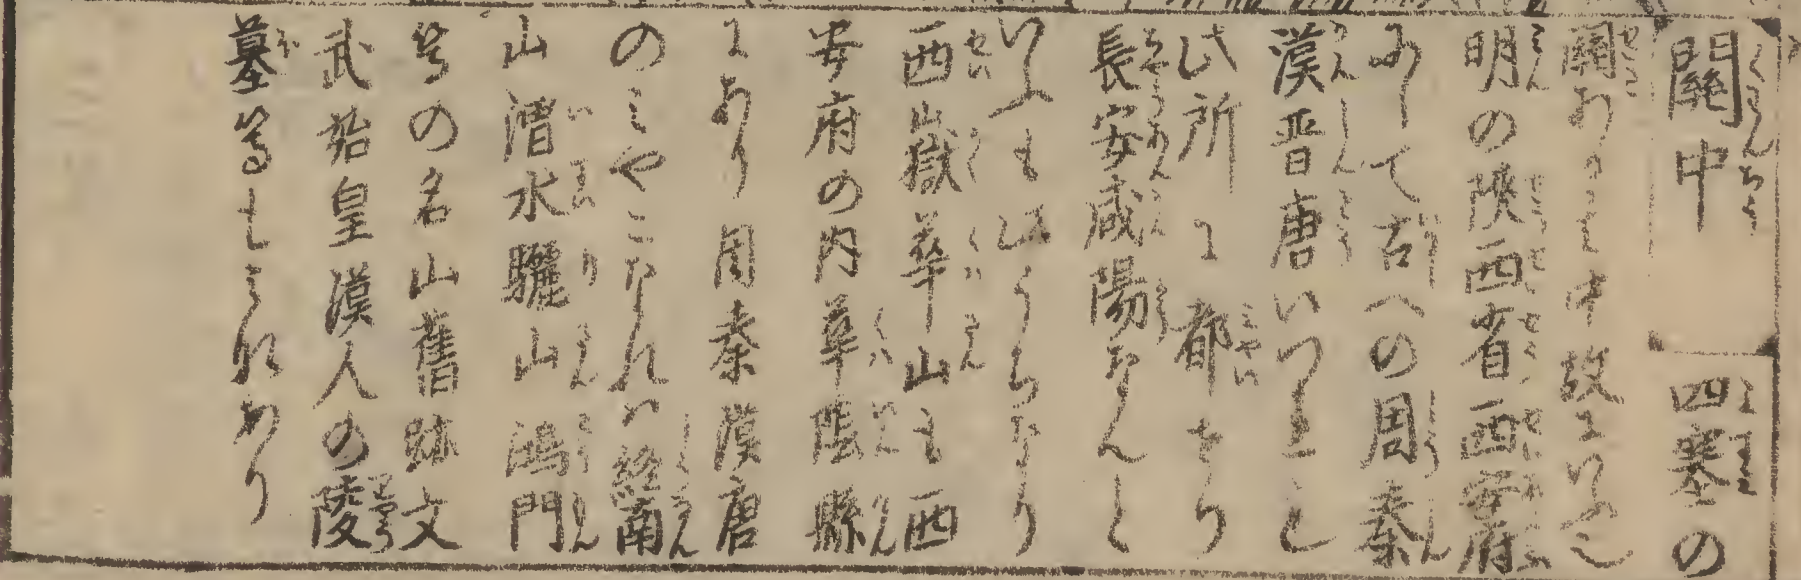 關中 四塞の
關あり其中故にいふ也
明の陝西省西安府
にして古への周秦
漢晋唐いつれも
此所に都せり
長安咸陽なんと
いふも此うちなり
西嶽華山も西
安府の内華陰縣
にあり周秦漢唐
のみやこなれハ終南
山渭水驪山鴻門
等の名山舊跡文
武始皇漢人の陵
墓等もみなあり